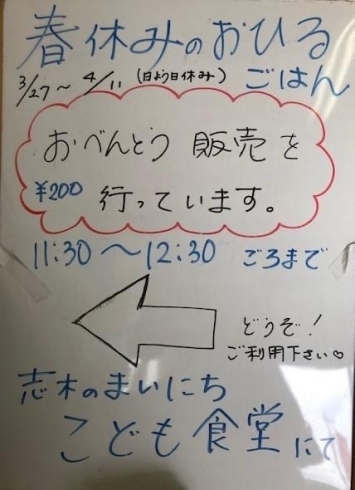 春休みのおひる
3/27〜4/11(日よう日休み)ごはん
おべんとう 販売を
¥200 行っています。
11:30〜12:30 ごろまで
どうぞ!
ご利用下さい♡
志木のまいにち
こども食堂にて